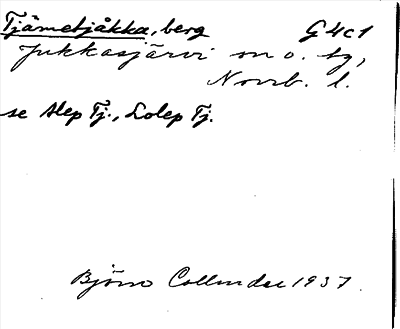 Tjåmetjåkka, berg G4c1
Jukkasjärvi sn o. tg,
Norrb. l.
se Alep Tj., Lolep Tj.
Björn Collinder 1937.